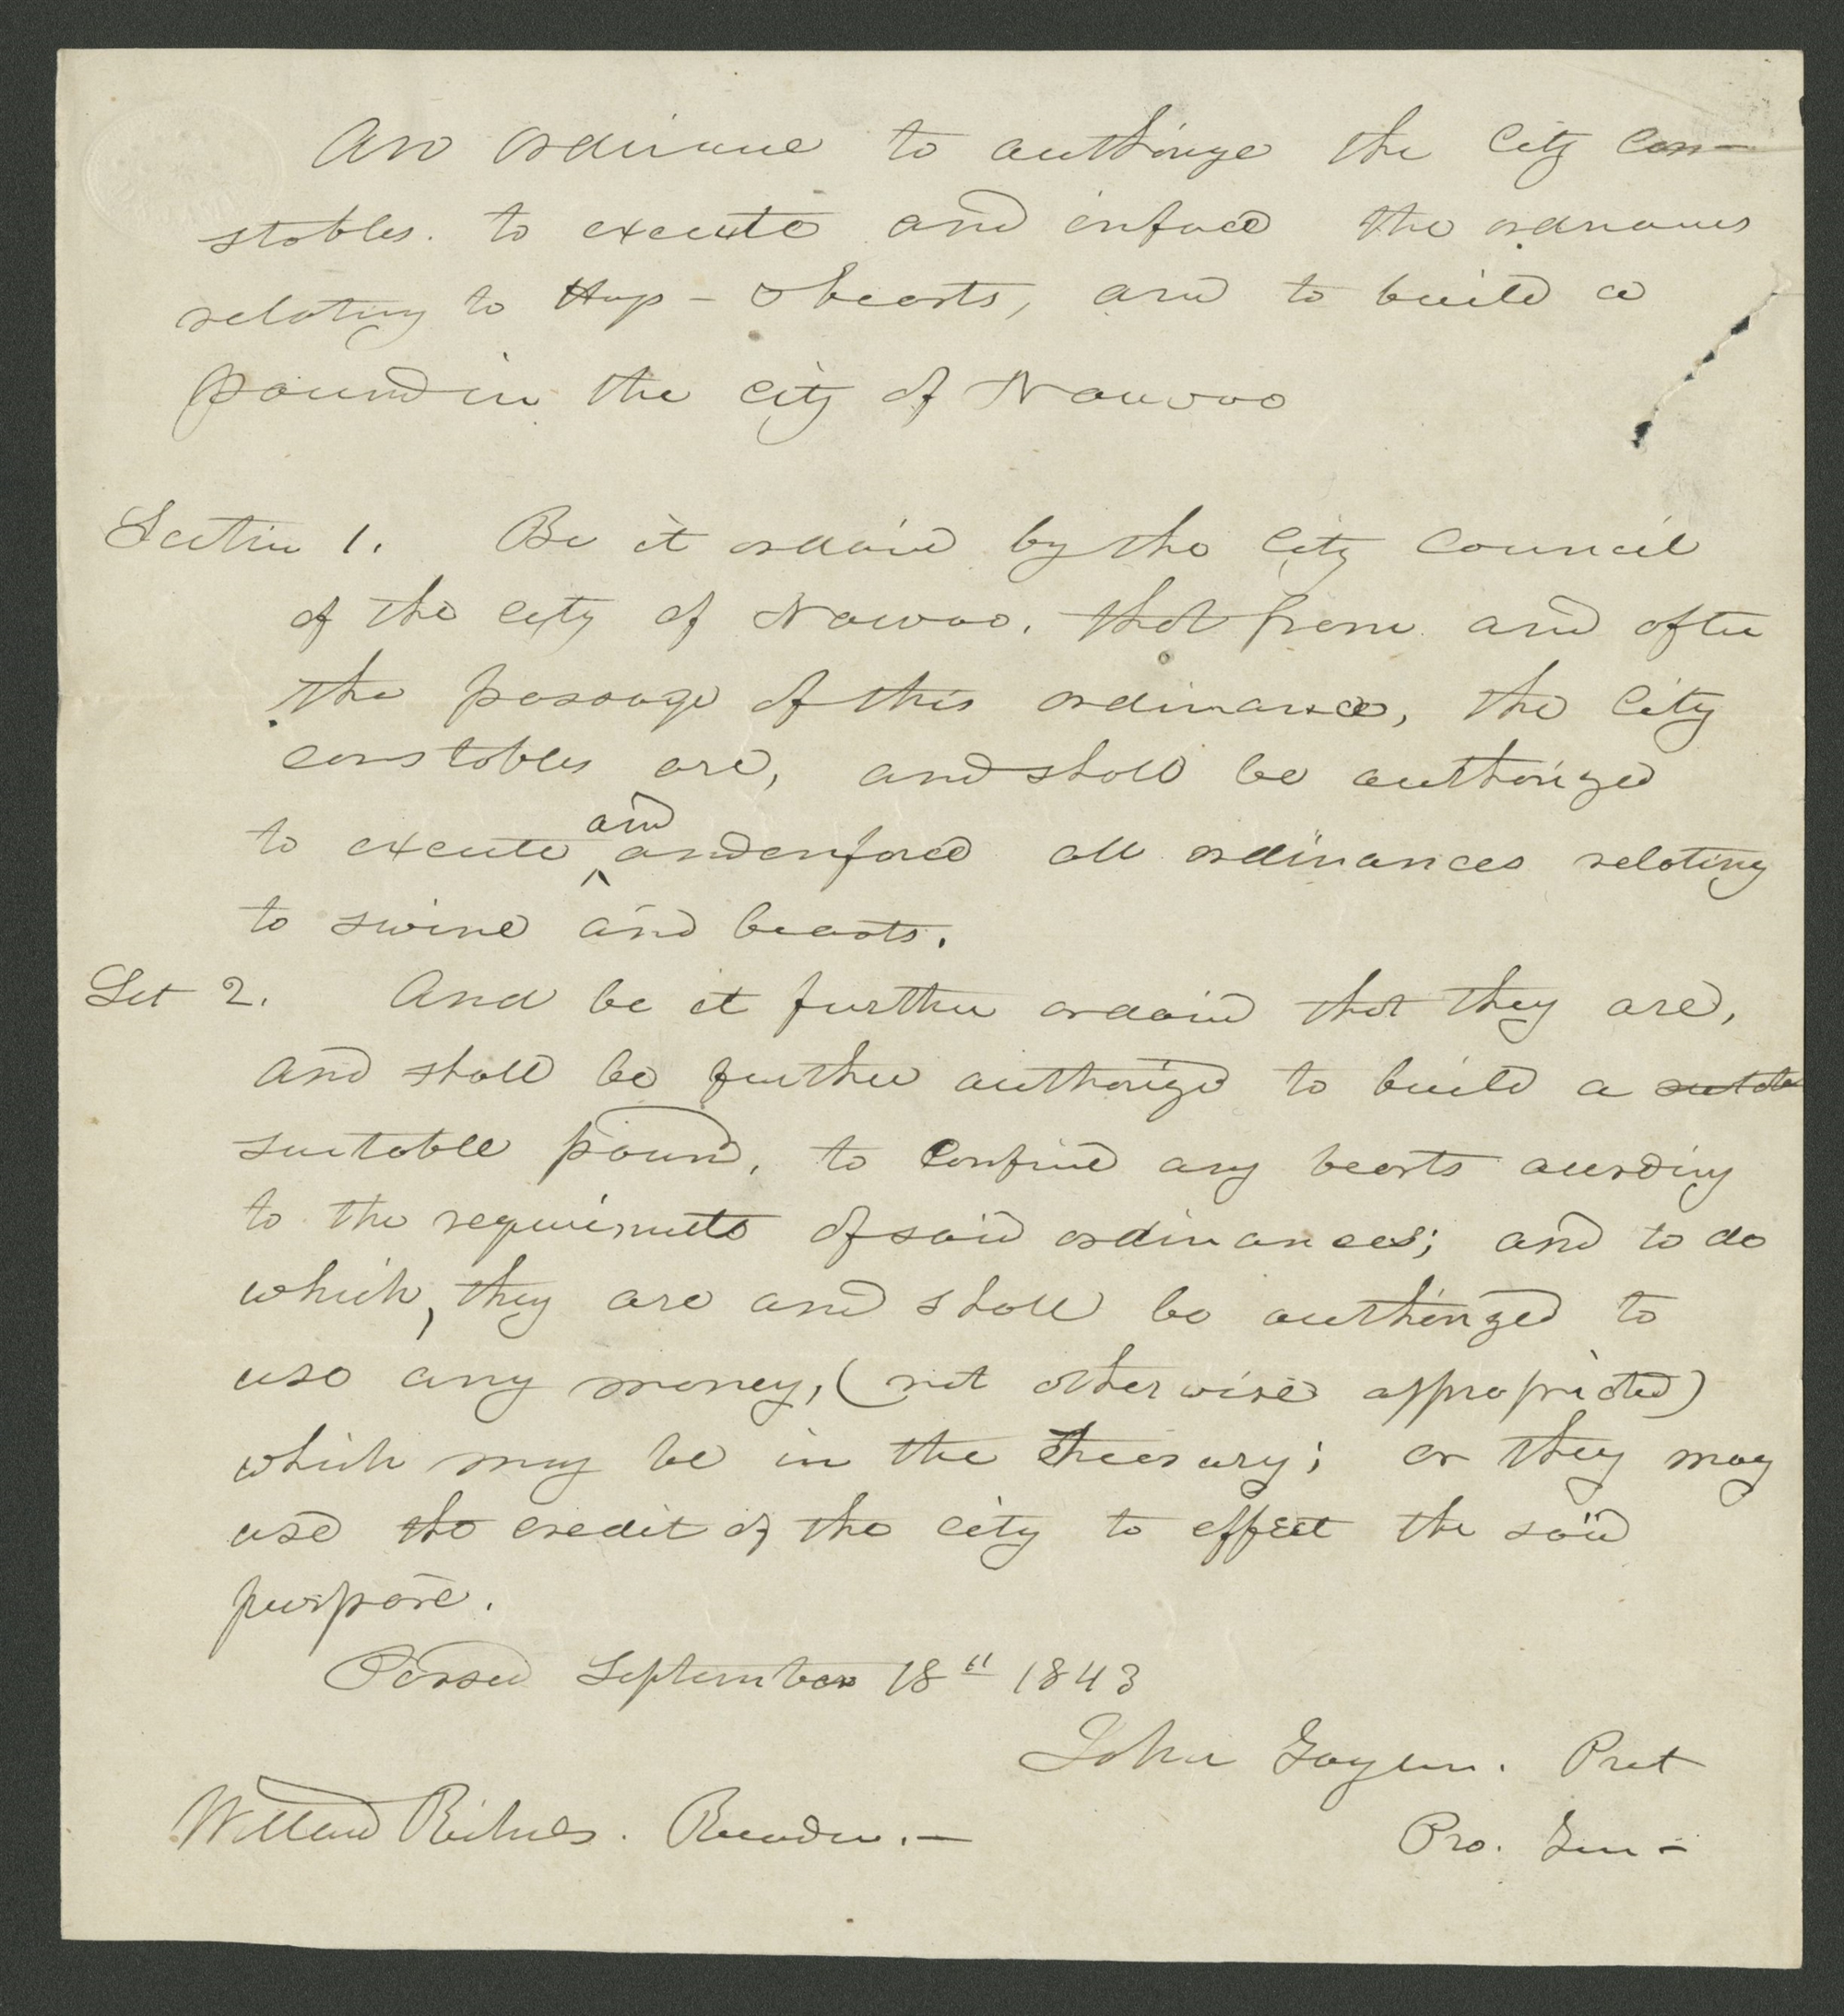 An ordinance to authorize the City Con-
stables. to execute and enforce the ordnances
relating to Hogs - & beasts, and to build a
pound in the City of Nauvoo
Section 1. Be it ordaind by the City Council
of the City of Nauvoo. that from and after
the passage of this ordinance, the City
constables are, and shall be authorized
to execute and
and enforce all ordinances relating
to swine and beasts.
Sect 2. And be it further ordaind that they are,
and shall be further authorized to build a
suitable pound, to confine any beasts according
to the requirments of said ordinances; and to do
which, they are and shall be authorized to
use any money, (not otherwise appropriated)
which may be in the Treasury; or they may
use the credit of the city to effect the said
purpose.
Passed September 18th 1843
John Taylor. Prest
Willard Richards. Recorder.—
Pro. Tem -